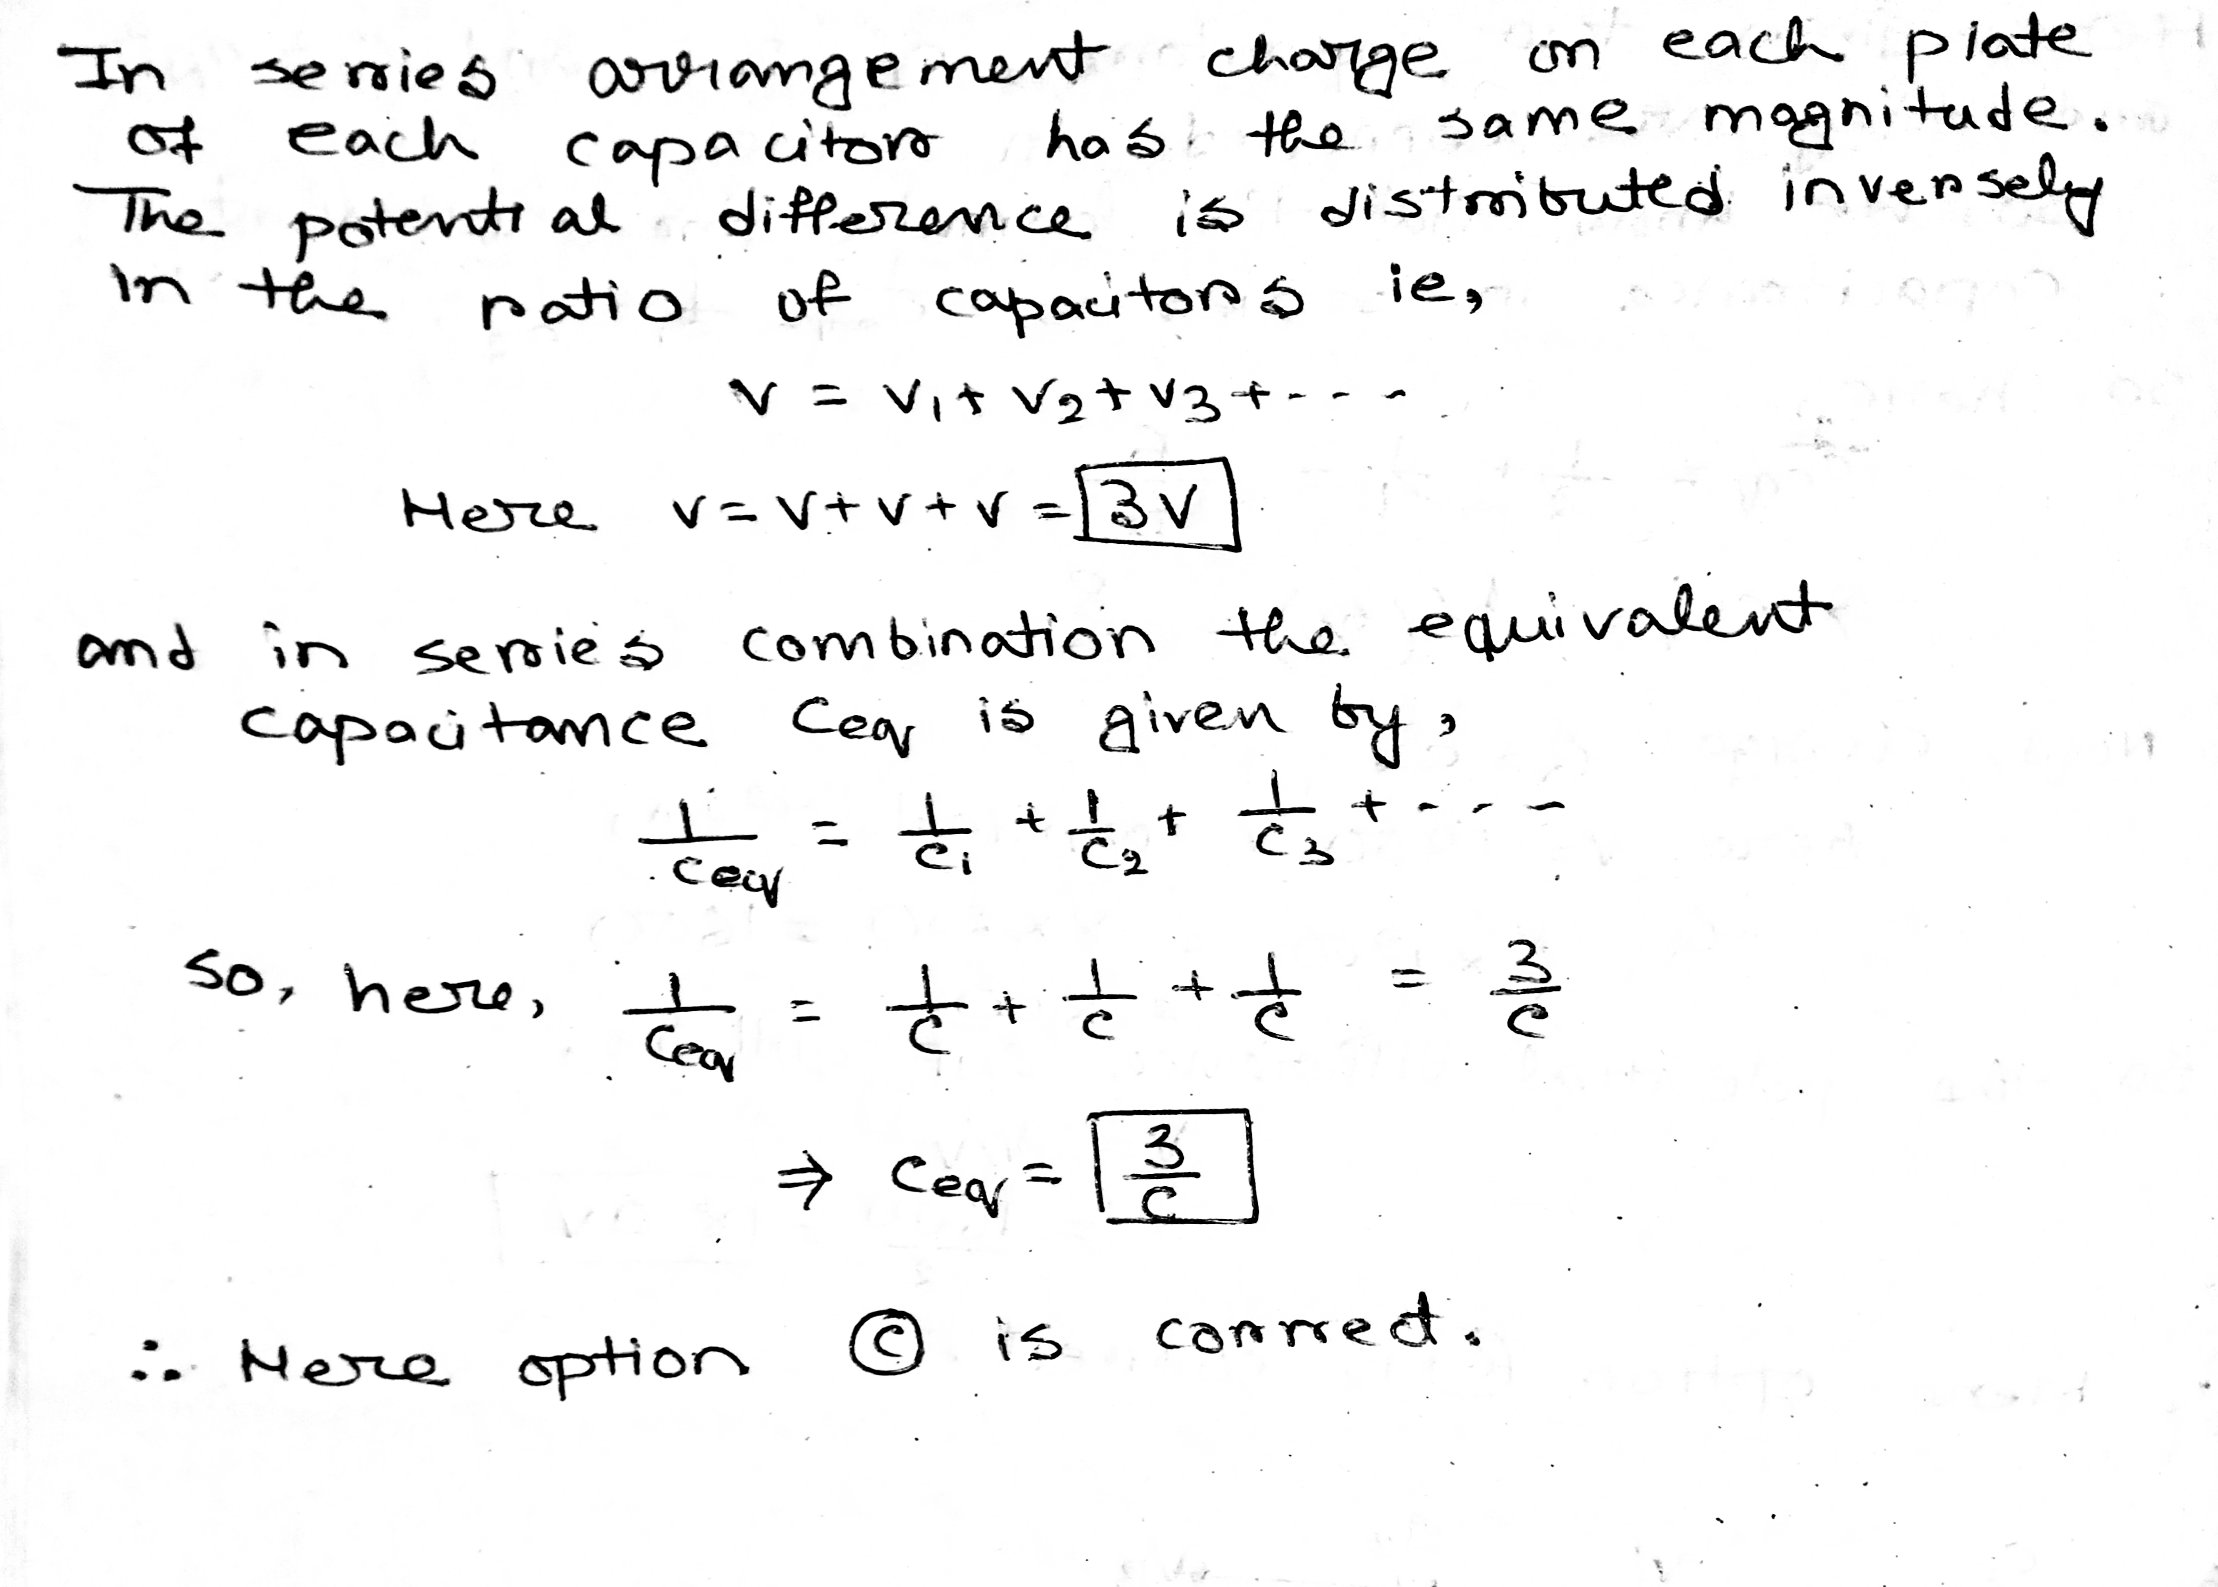 In series arrangement charge on each plate
of each capacitor has the same magnitude.
The potential difference is distributed inversely
in the ratio of capacitors ie,
V = V1 + V2 + V3 + - - - -
Here V = V + V + V = 3V
and in series combination the equivalent
capacitance Ceq is given by,
1/Ceq = 1/C1 + 1/C2 + 1/C3 + - - - -
so, here, 1/Ceq = 1/C + 1/C + 1/C = 3/C
⇒ Ceq = 3/C
∴ Here option Ⓒ is correct.